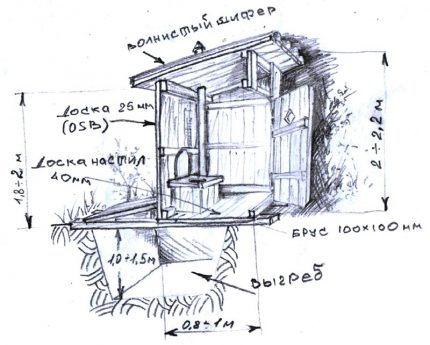 ВОЛНИСТЫЙ ШИФЕР
ДОСКА 25мм
(OSB)
ДОСКА НАСТИЛ
40мм
1,8÷2 м
2÷2,2м
БРУС 100×100мм
1,0÷1,5м
ВЫГРЕБ
0,8÷1м